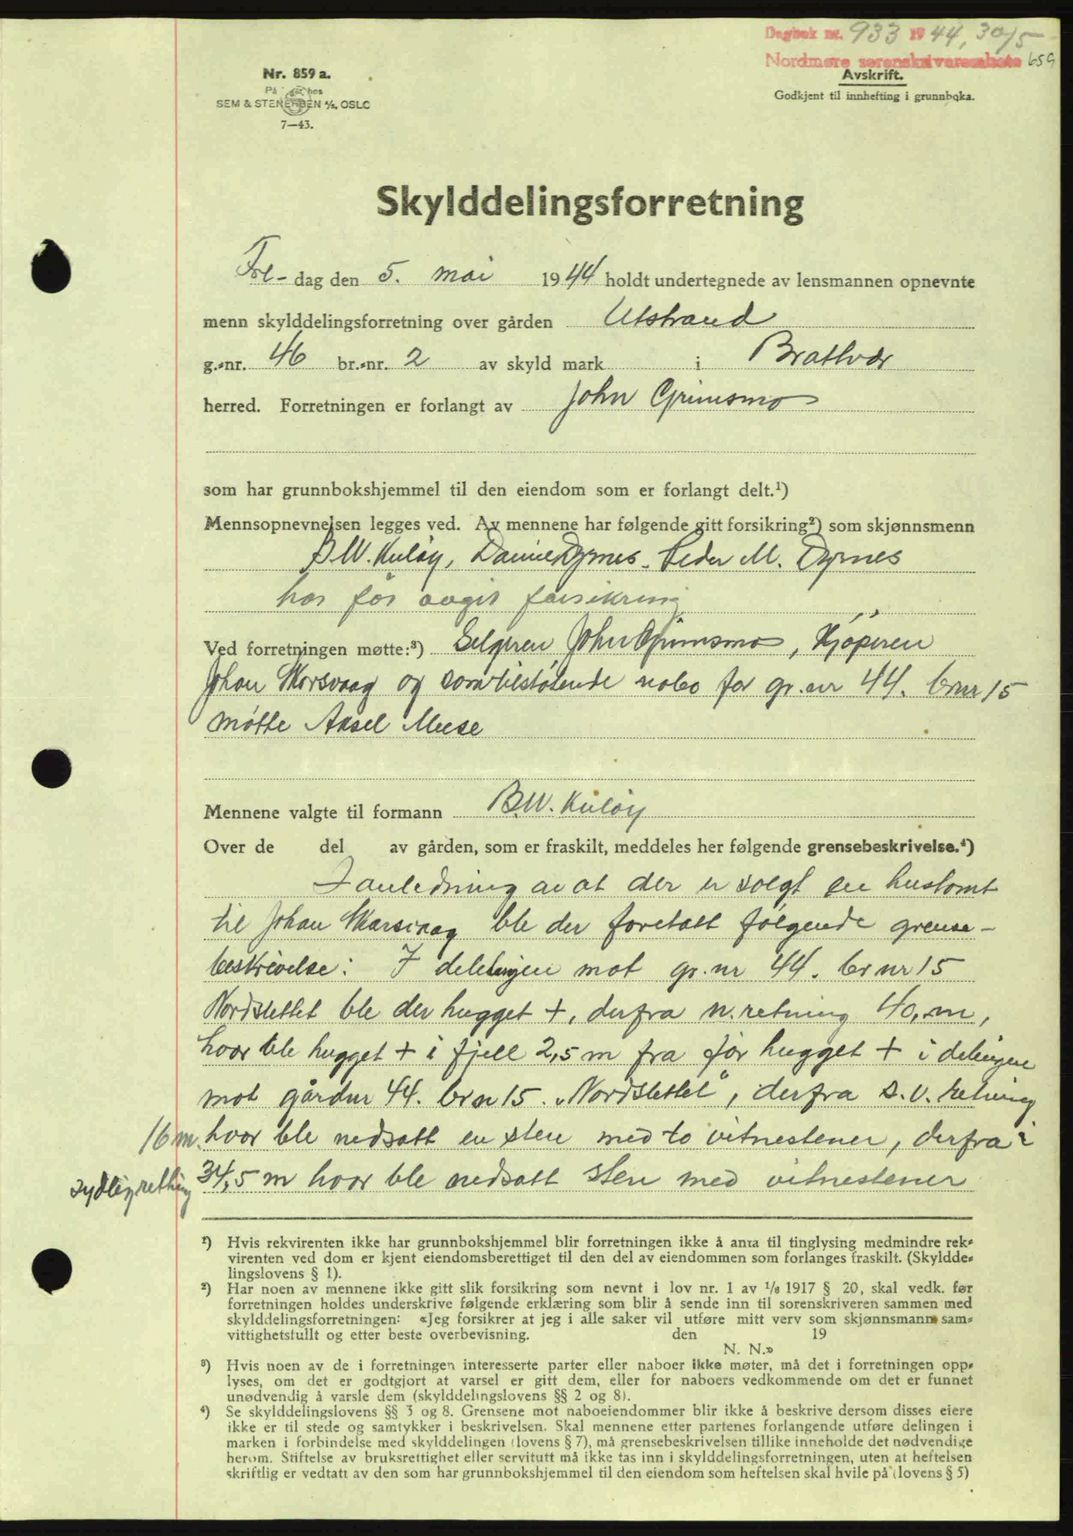 Dagbok nr. 933 1944, 30/5
Nordmøre sorenskriverembete 659
Nr. 859 a.
SEM & STENERSEN A/S, OSLO
7—43.
Avskrift.
Godkjent til innhefting i grunnboka.
Skylddelingsforretning
Fre-dag den 5. mai 1944 holdt undertegnede av lensmannen opnevnte
menn skylddelingsforretning over gården Utstrand
g.-nr. 46 br.-nr. 2 av skyld mark i Brattvær
herred. Forretningen er forlangt av John Grimsmo
som har grunnbokshjemmel til den eiendom som er forlangt delt.¹)
Mennsopnevnelsen legges ved. Av mennene har følgende gitt forsikring²) som skjønnsmenn
B.W. Kuløy, Daniel Dyrnes. Peder M. Dyrnes
har før avgit forsikring
Ved forretningen møtte:³) Selgeren John Grimsmo, Kjøperen
Johan Skarsvaag og som tilstøtende nabo for gr.nr 44. brnr 15
møtte Aksel Meese
Mennene valgte til formann B.W. Kuløy
Over de del av gården, som er fraskilt, meddeles her følgende grensebeskrivelse.⁴)
I anledning av at der er solgt en hustomt
til Johan Skarsvaag ble der foretatt følgende grense-
beskrivelse: I delelinjen mot gr.nr 44. brnr 15
Nordslettet ble der hugget +, derfra n. retning 40, m,
hvor ble hugget + i fjell 2,5 m fra før hugget + i delingen
mot gårdnr 44. brn 15. "Nordslettet", derfra s.v. retning
16 m. hvor ble nedsatt en sten med to vitnestener, derfra i
sydlig retning 34,5 m hvor ble nedsatt sten med vitnestener
¹) Hvis rekvirenten ikke har grunnbokshjemmel blir forretningen ikke å anta til tinglysing medmindre rek-
virenten ved dom er kjent eiendomsberettiget til den del av eiendommen som forlanges fraskilt. (Skyldde-
lingslovens § 1).
²) Har noen av mennene ikke gitt slik forsikring som nevnt i lov nr. 1 av 1/6 1917 § 20, skal vedk. før
forretningen holdes underskrive følgende erklæring som blir å sende inn til sorenskriveren sammen med
skylddelingsforretningen: «Jeg forsikrer at jeg i alle saker vil utføre mitt verv som skjønnsmann sam-
vittighetsfullt og etter beste overbevisning. den 19
N. N.»
³) Hvis noen av de i forretningen interesserte parter eller naboer ikke møter, må det i forretningen opp-
lyses, om det er godtgjort at varsel er gitt dem, eller for naboers vedkommende om det er funnet
unødvendig å varsle dem (skylddelingslovens §§ 2 og 8).
⁴) Se skylddelingslovens §§ 3 og 8. Grensene mot naboeiendommer blir ikke å beskrive dersom disses eiere
ikke er til stede og samtykker i beskrivelsen. Skal mennene etter partenes forlangende utføre delingen i
marken i forbindelse med skylddelingen (lovens § 7), må grensebeskrivelsen tillike inneholde det nødvendige
herom. Stiftelse av bruksrettighet eller servitutt må ikke tas inn i skylddelingsforretningen, uten at heftelsen
skriftlig er vedtatt av den som har grunnbokshjemmel til den eiendom som heftelsen skal hvile på (lovens § 5)